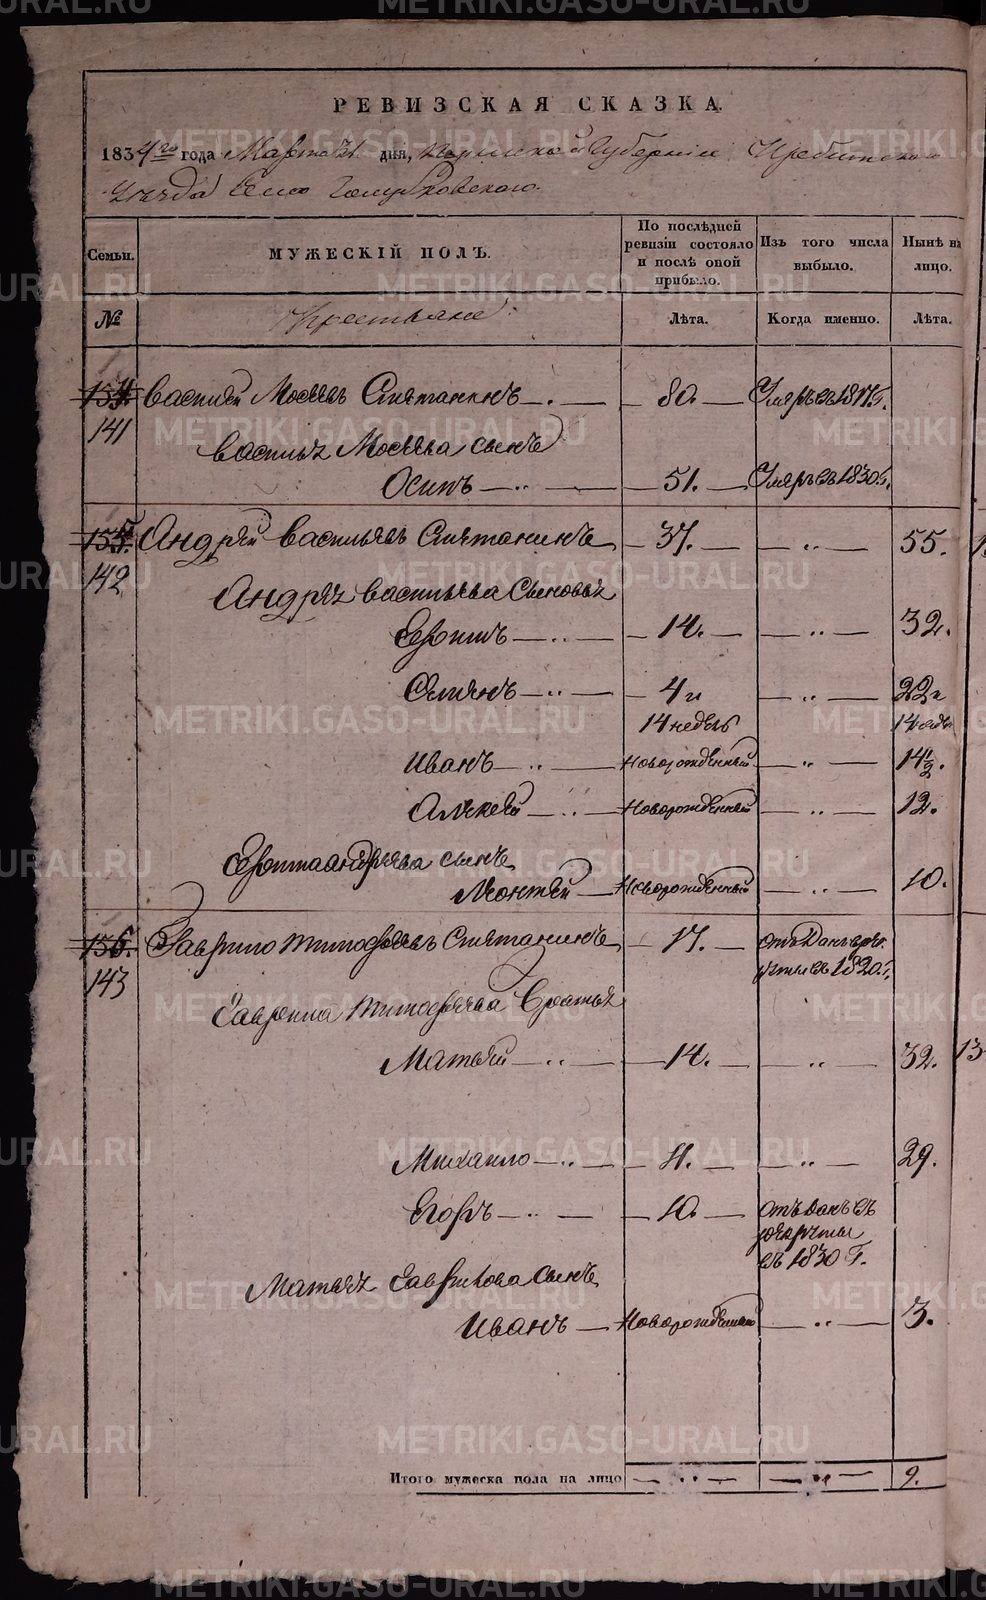 РЕВИЗСКАЯ СКАЗКА.
1834го года Марта 31 дня, Пермской Губернiи Ирбитскаго
Уѣзда Села Голубковскаго.
Семьи.
МУЖЕСКIЙ ПОЛЪ.
По послѣдней ревизiи состояло и послѣ оной прибыло.
Изъ того числа выбыло.
Нынѣ на лицо.
№
Крестьяне
Лѣта.
Когда именно.
Лѣта.
154. Василей Мосѣевъ Смѣтанинъ — 80. — Умеръ въ 1817.Г.
141
Василья Мосѣева сынъ
Осипъ — 51. — Умеръ въ 1830.Г.
155. Андрей Васильевъ Смѣтанинъ — 37. — 55.
142
Андрея Васильева Сыновья
Ефримъ — 14. — 32.
Семенъ — 4 г — 22 г
14 недель
Иванъ — новорожденный — 14 1/2.
Алексей — Новорожденный — 12.
Андреева сынъ
Леонтей — Новорожденный — 10.
156. Гаврило Тимофеевъ Смѣтанинъ — 17. — отъданъ в рекруты въ 1820.Г.
143
Гаврила Тимофеева Братья
Матвей — 14. — 32. 13
Михаило — 11. — 29.
Егоръ — 10. — отъданъ въ
рекруты
въ 1830 Г.
Матвея Гаврилова сынъ
Иванъ — Новорожденный — 3.
Итого мужеска пола на лицо — 9.
METRIKI.GASO-URAL.RU